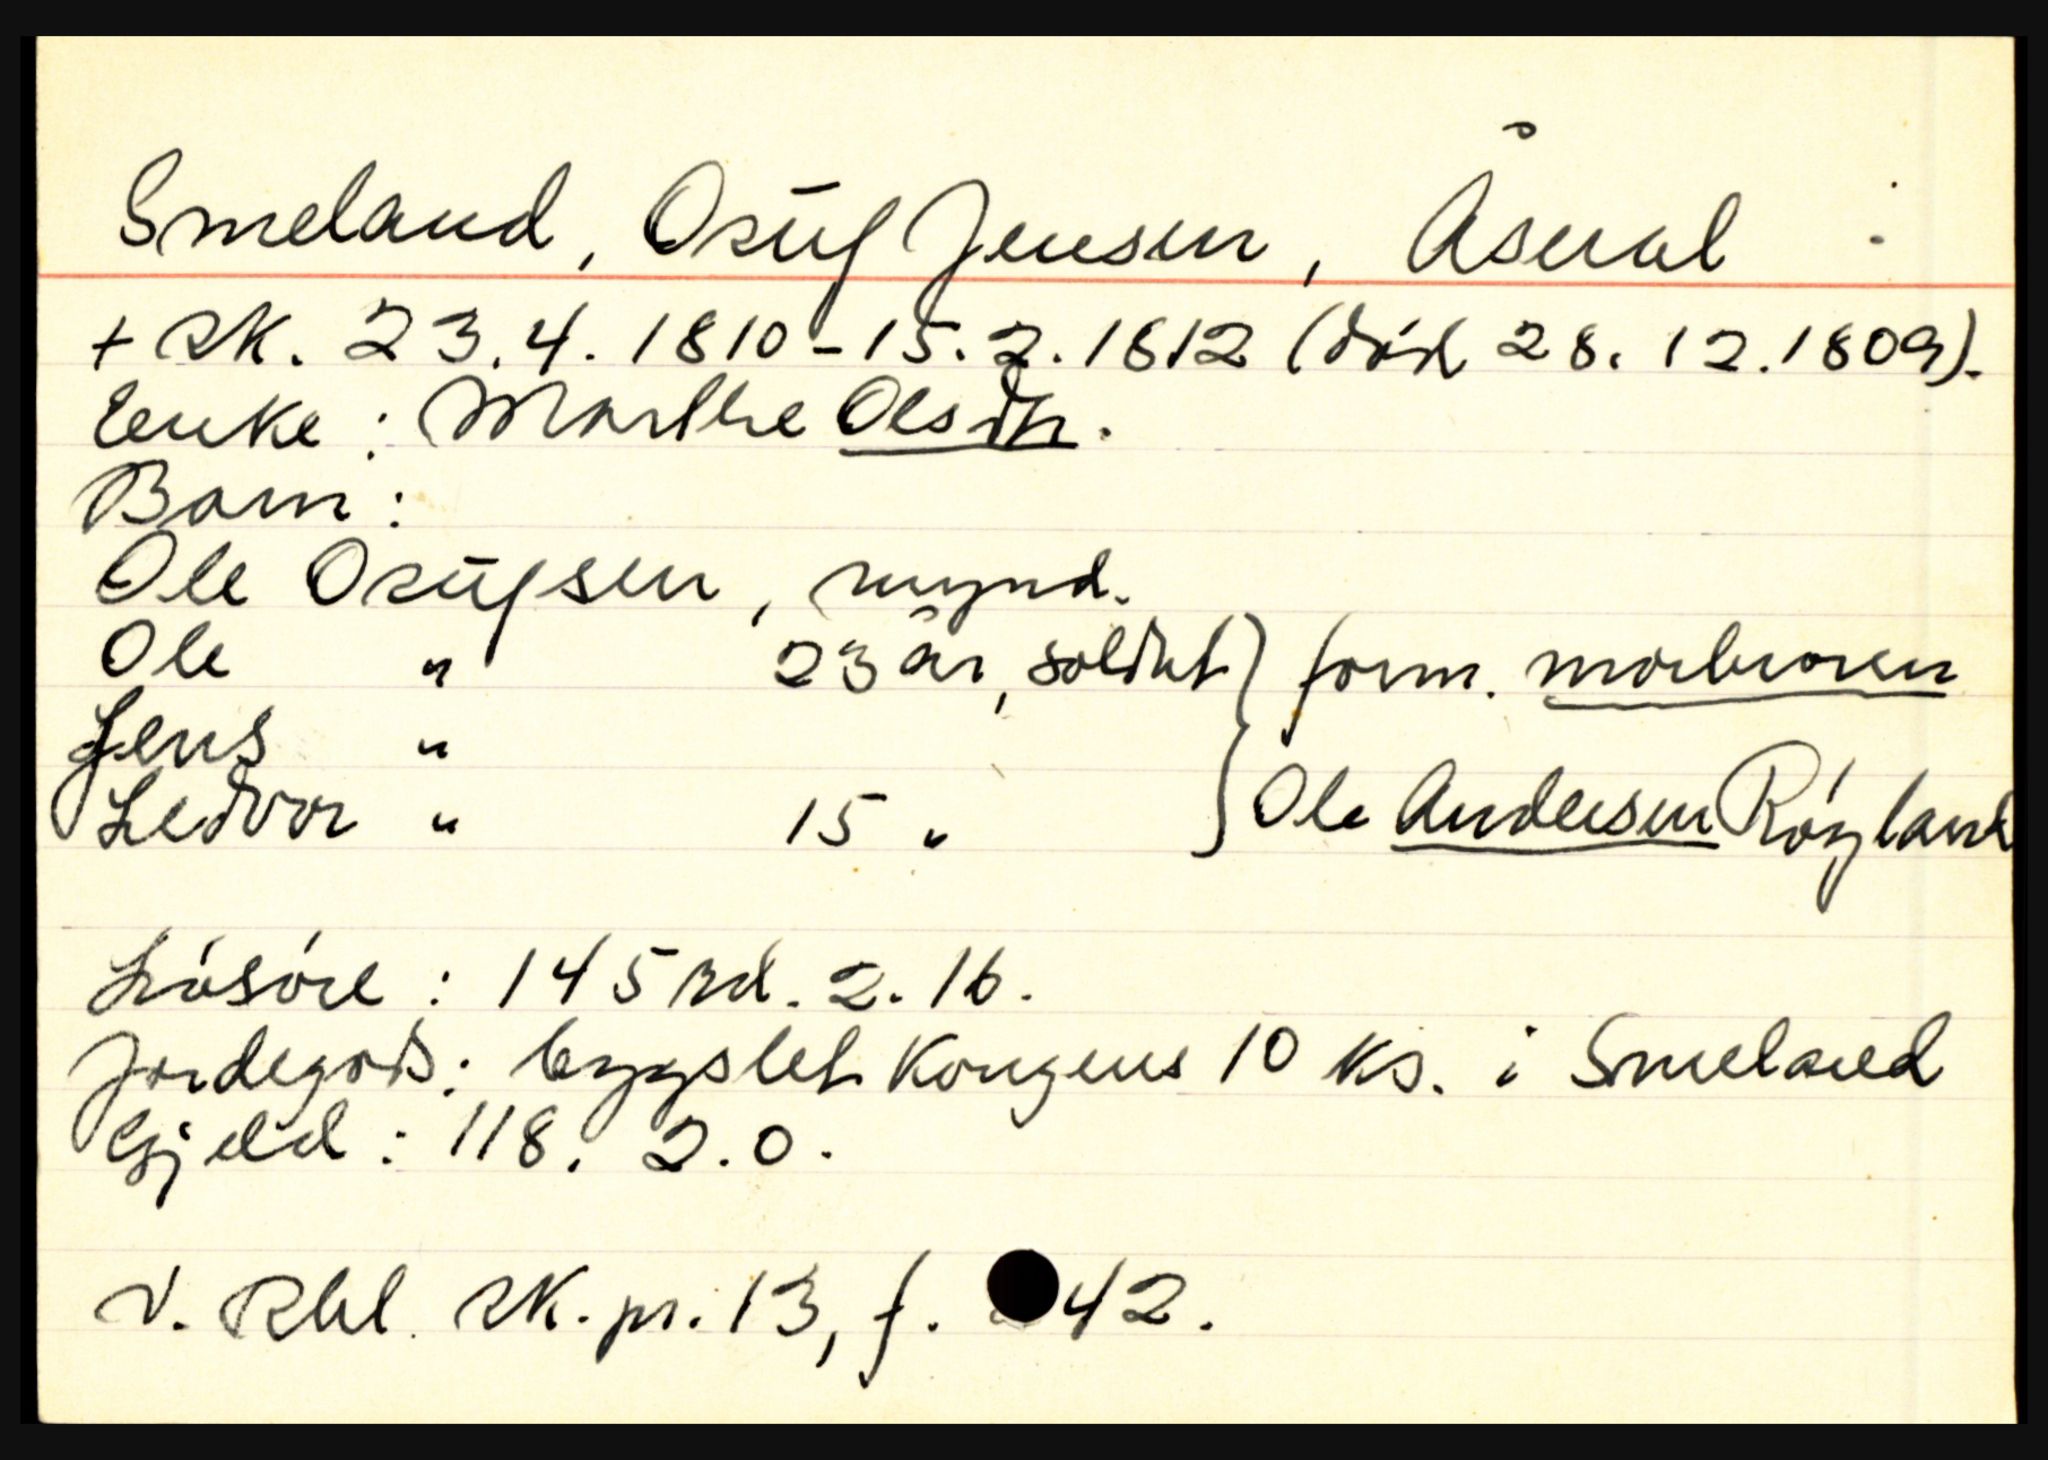 Smeland, Osuf Jensen, Åseral :
+ sk. 23.4.1810 - 15.2.1812 (död 28.12.1809).
Enke : Marthe Olsdtr.
Barn :
Ole Osufsen, mynd.
Ole " 23 år, soldat } form. morbroren
Jens "
Ledvor " 15 " } Ole Andersen Röyland
Lösöre : 145 rd. 2. 16.
Jordegods : bygslet Kongens 10 ks. i Smeland
Gjeld : 118. 2. 0.
V. Rbl. sk. pr. 13, f. 42.